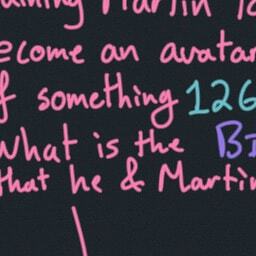 Martin
ecome an avatar
f something 126
What is the BI
that he & Martin